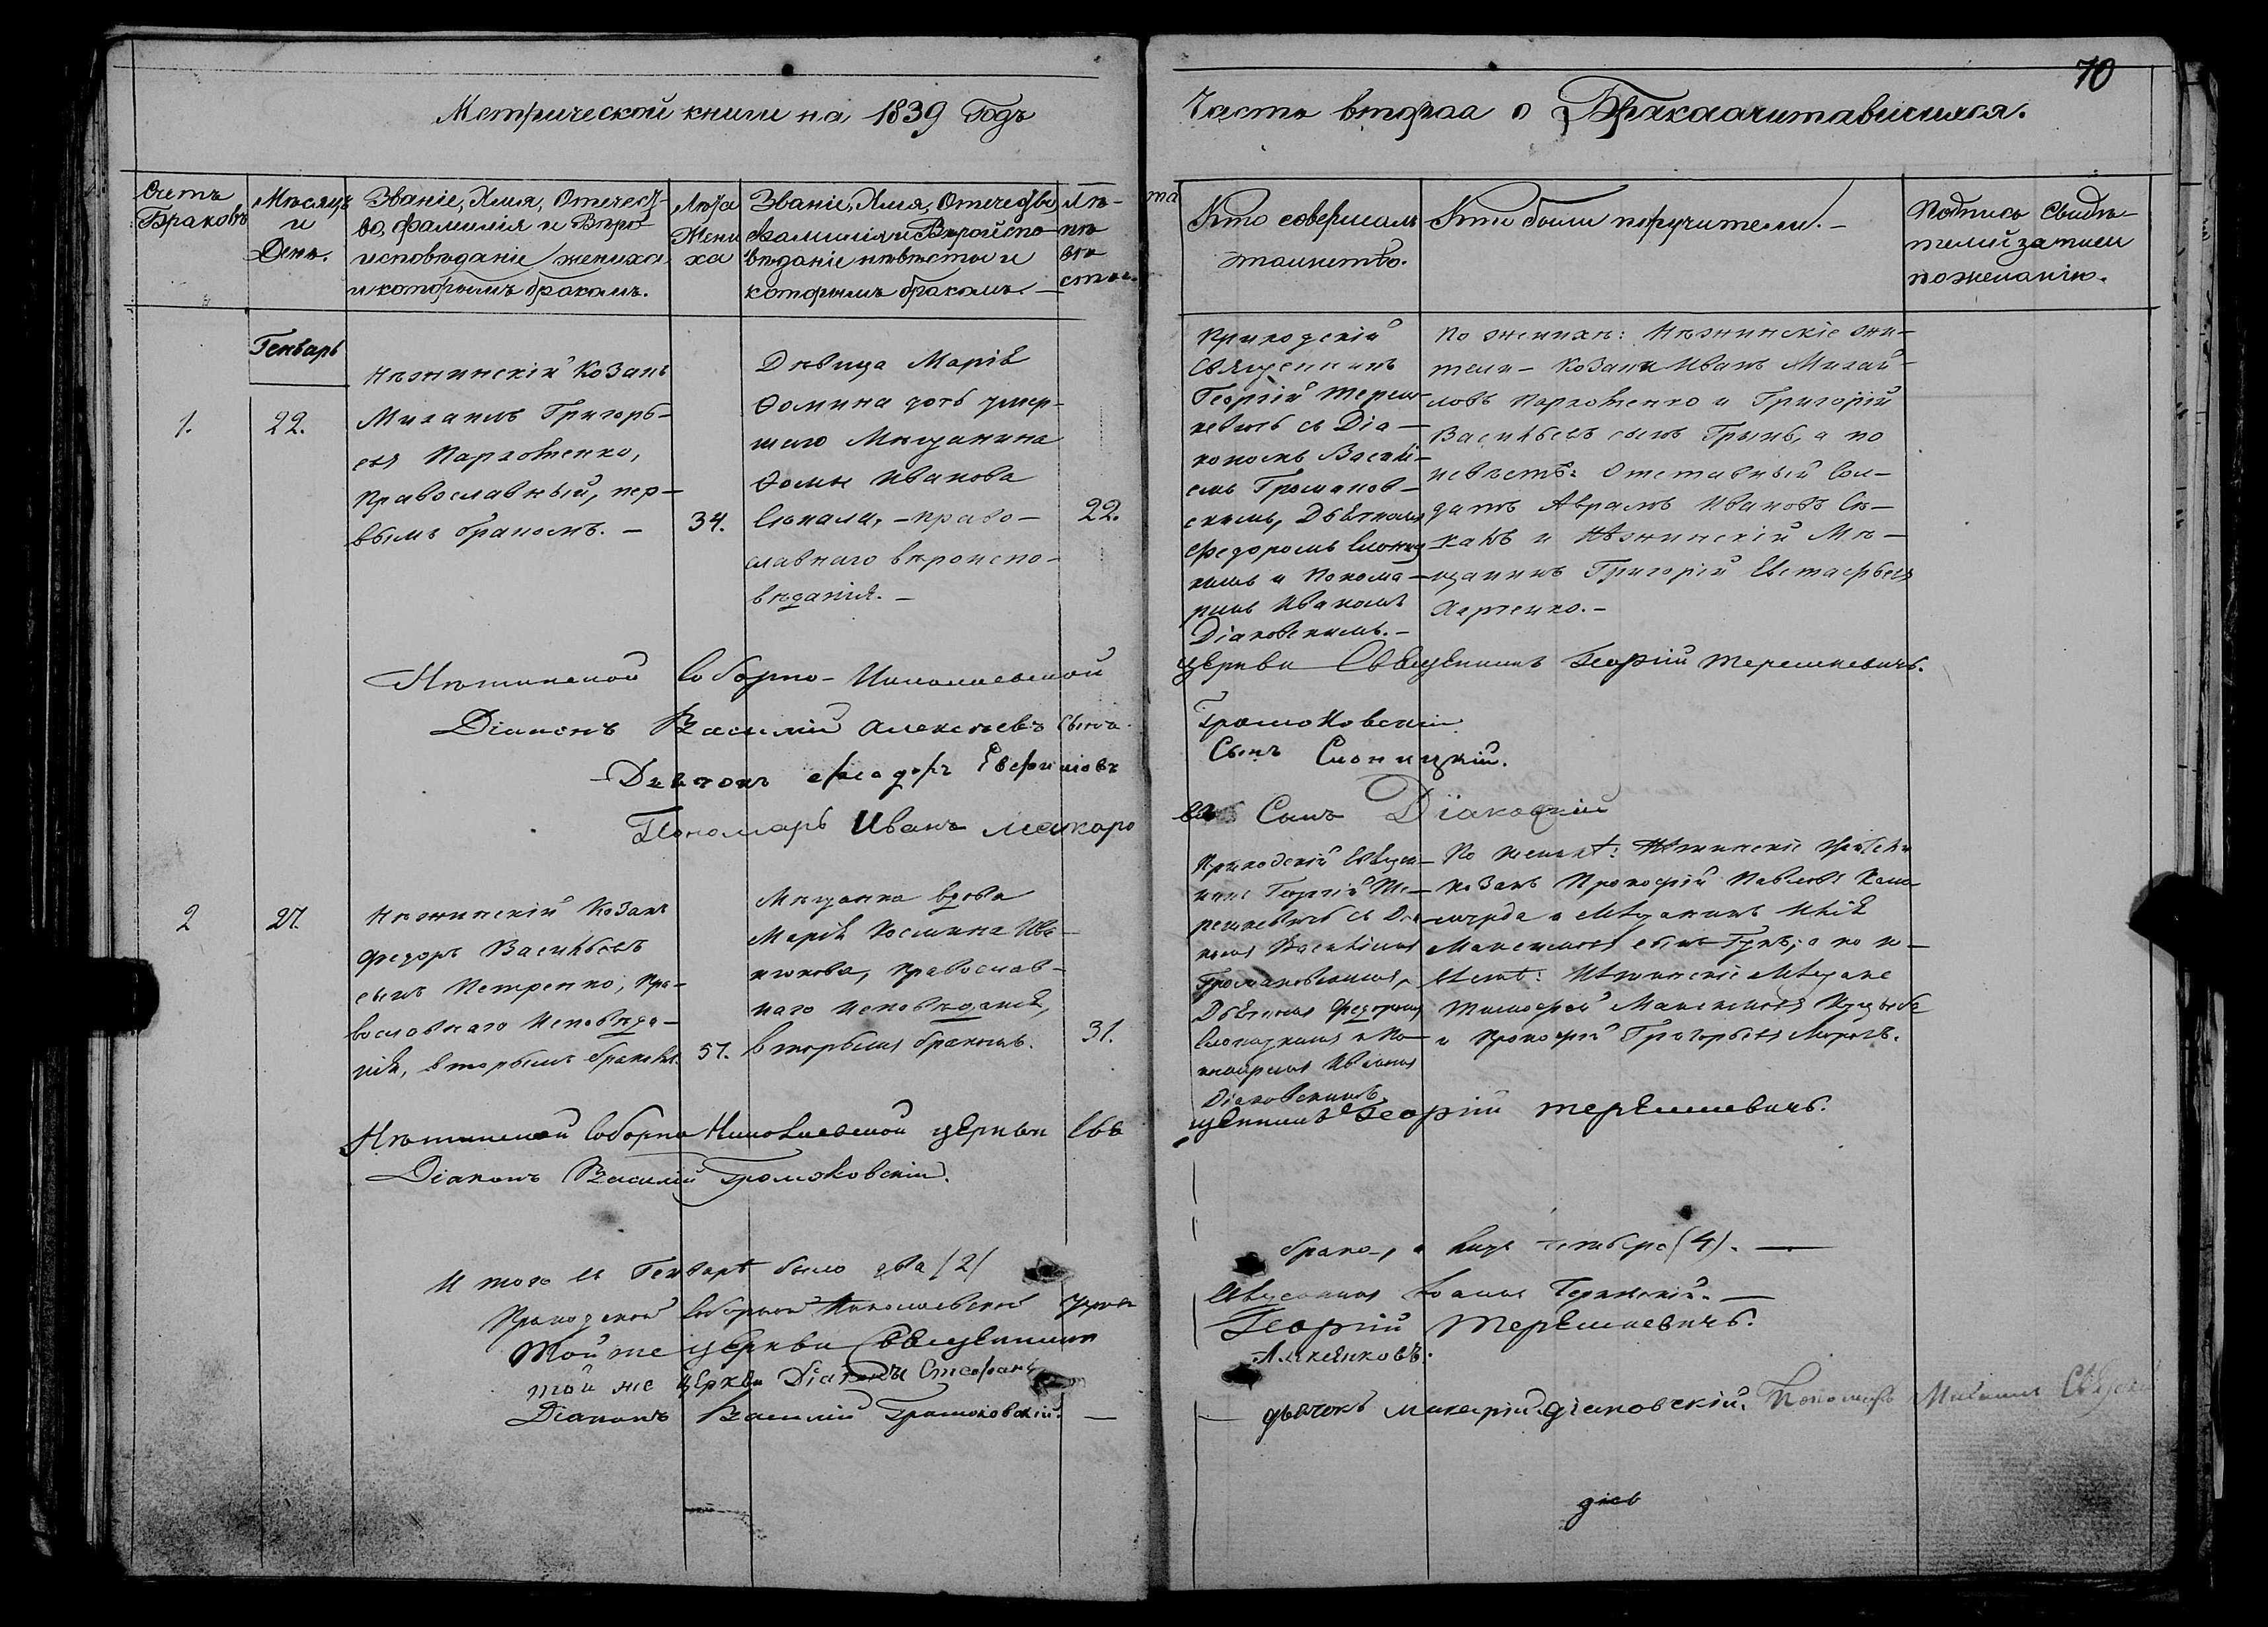 70
Метрической книги на 1839 Годъ
Часть вторая о Бракосочитавшихся.
Счетъ Браковъ
Мѣсяцъ и День.
Званіе, Имя, Отечест-
во, фамилія и Вѣро
исповѣданіе жениха
и которымъ бракомъ.
Лѣта
Жени
ха
Званіе, Имя, Отечество,
Фамилія и Вѣроиспо-
вѣданіе невѣсты и
которымъ бракомъ.
Лѣ-
та
не
вѣ
сты.
Кто совершалъ
таинство.
Кто были поручители.
Подпись Свидѣ-
телей записи
по желанію.
Генварь
1.
22.
Нѣжинскій Козакъ
Михаилъ Григорь-
евъ Пархоменко,
Православный, пер-
вымъ бракомъ.
34.
Дѣвица Марія
Ѳомина дочь умер-
шаго Мѣщанина
Ѳомы Иванова
право-
славнаго вѣроиспо-
вѣданія.
22.
Приходскій
Священникъ
Георгій Тереш-
кевичъ съ Діа-
кономъ Василі-
емъ Громаков-
скимъ, Дьячкомъ
Федоромъ Слониц
кимъ и Понома-
ремъ Иваномъ
Діаковскимъ.
По женихѣ: Нѣжинскіе жи-
тели - Козаки Иванъ Михай-
ловъ Пархоменко и Григорій
Васильевъ сынъ Гринь, а по
невѣстѣ: Отставный Сол-
датъ Аврамъ Ивановъ Сѣ-
какъ и Нѣжинскій Мѣ-
щанинъ Григорій Евстафьевъ
Нѣжинской Соборно-Николаевской церкви Священникъ Георгій Терешкевичъ.
Діаконъ Василій Алексѣевъ сынъ Громаковскій
Дьячокъ Федоръ Евфимовъ Сынъ Слоницкій.
Пономарь Иванъ Макаровъ Сынъ Діаковскій
2
27.
Нѣжинскій Козакъ
Федоръ Васильевъ
сынъ Петренко, Пра-
вославнаго Исповѣда-
нія, вторымъ бракомъ.
57.
Мѣщанка вдова
Марія Космина Ива-
православ-
наго исповѣданія,
вторымъ бракомъ.
31.
Приходскій Священ-
никъ Георгій Те-
решкевичъ съ Діа-
кономъ Василіемъ
Громаковскимъ,
Дьячкомъ Федоромъ
Слоницкимъ и По-
номаремъ Иваномъ
Діаковскимъ.
По женихѣ: Нѣжинскіе жители
Козакъ Прокофій Павловъ
и Мѣщанинъ Илія
Максимовъ сынъ а по не-
вѣстѣ: Нѣжинскіе Мѣщане
Тимофей Максимовъ
и Прокофій Григорьевъ
Нѣжинской Соборно Николаевской церкви Священникъ Георгій Терешкевичъ.
Діаконъ Василій Громаковскій.
Итого въ Генварѣ было два (2) брака, а лицъ четверо (4).
Приходской Соборной Николаевской церкви Священникъ
Той же церкви Священникъ Георгій Терешкевичъ.
той же Церкви Діаконъ Стефанъ
Діаконъ Василій Громаковскій.
дьячокъ Макарій Діаковскій. Пономарь Михаилъ